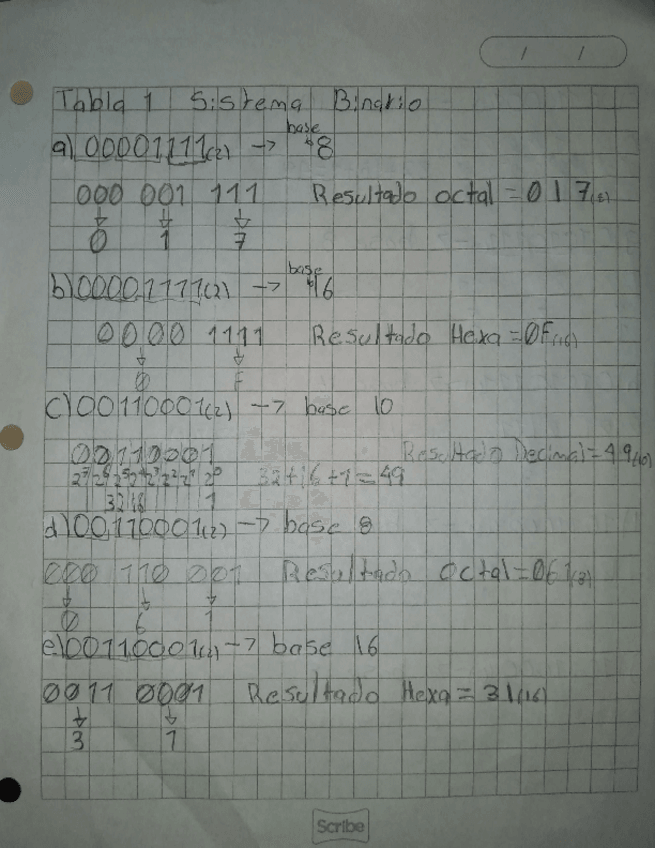 / /
Tabla 1 Sistema Binario
a) 00001111(2) -> base 8
000 001 111 Resultado octal = 017(8)
0 1 7
b) 00001111(2) -> base 16
0000 1111 Resultado Hexa = 0F(16)
0 F
c) 00110001(2) -> base 10
00110001 Resultado Decimal = 49(10)
2⁷ 2⁶ 2⁵ 2⁴ 2³ 2² 2¹ 2⁰ 32+16+1=49
32 16 1
d) 00110001(2) -> base 8
000 110 001 Resultado Octal = 061(8)
0 6 1
e) 00110001(2) -> base 16
0011 0001 Resultado Hexa = 31(16)
3 1
Scribe